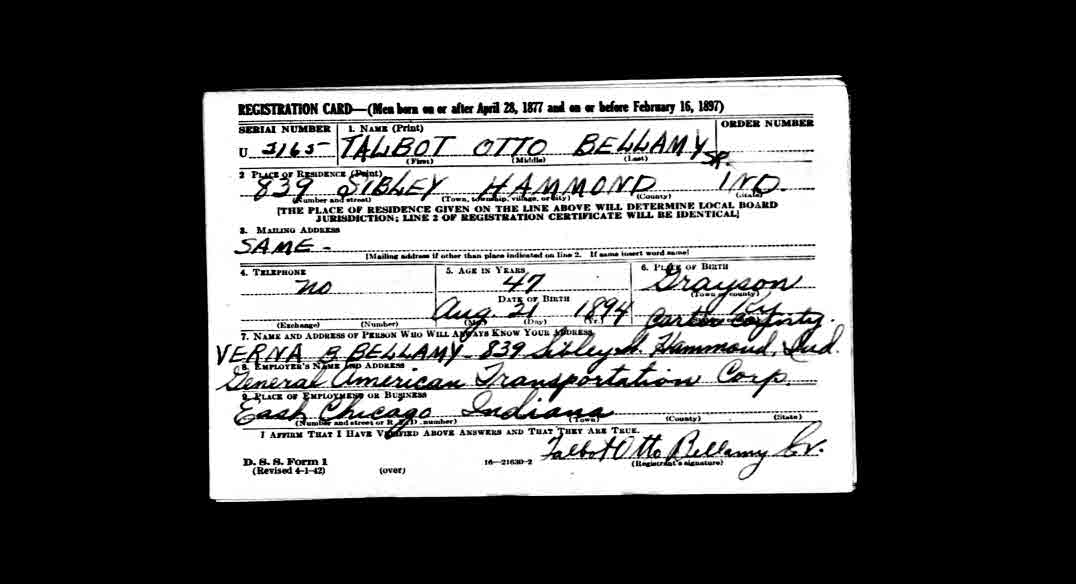 REGISTRATION CARD—(Men born on or after April 28, 1877 and on or before February 16, 1897)
SERIAL NUMBER 1. NAME (Print) ORDER NUMBER
U 3165 TALBOT OTTO BELLAMY SR.
(First) (Middle) (Last)
2 PLACE OF RESIDENCE (Print)
839 SIBLEY HAMMOND IND.
(Number and street) (Town, township, village, or city) (County) (State)
[THE PLACE OF RESIDENCE GIVEN ON THE LINE ABOVE WILL DETERMINE LOCAL BOARD
JURISDICTION; LINE 2 OF REGISTRATION CERTIFICATE WILL BE IDENTICAL]
3. MAILING ADDRESS
SAME -
[Mailing address if other than place indicated on line 2. If same insert word same]
4. TELEPHONE 5. AGE IN YEARS 6. PLACE OF BIRTH
No 47 Grayson
(Town or county)
DATE OF BIRTH Ky
Aug. 21 1894 Carter County.
(Exchange) (Number) (Mo.) (Day) (Yr.)
7. NAME AND ADDRESS OF PERSON WHO WILL ALWAYS KNOW YOUR ADDRESS
VERNA B BELLAMY - 839 Sibley St. Hammond, Ind.
8. EMPLOYER'S NAME AND ADDRESS
General American Transportation Corp.
9. PLACE OF EMPLOYMENT OR BUSINESS
East Chicago Indiana
(Number and street or R. F. D. number) (Town) (County) (State)
I AFFIRM THAT I HAVE VERIFIED ABOVE ANSWERS AND THAT THEY ARE TRUE.
Talbot Otto Bellamy Sr.
D. S. S. Form 1 16—21630-2 (Registrant's signature)
(Revised 4-1-42) (over)